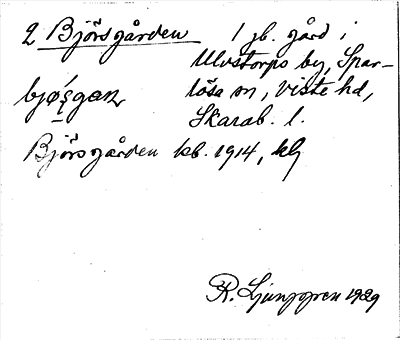 2 Björsgården 1 jb. gård i
Ulvstorps by, Spar-
lösa sn, Viste hd,
Skarab. l.
Björsgården kb. 1914, klg
R. Ljunggren 1929